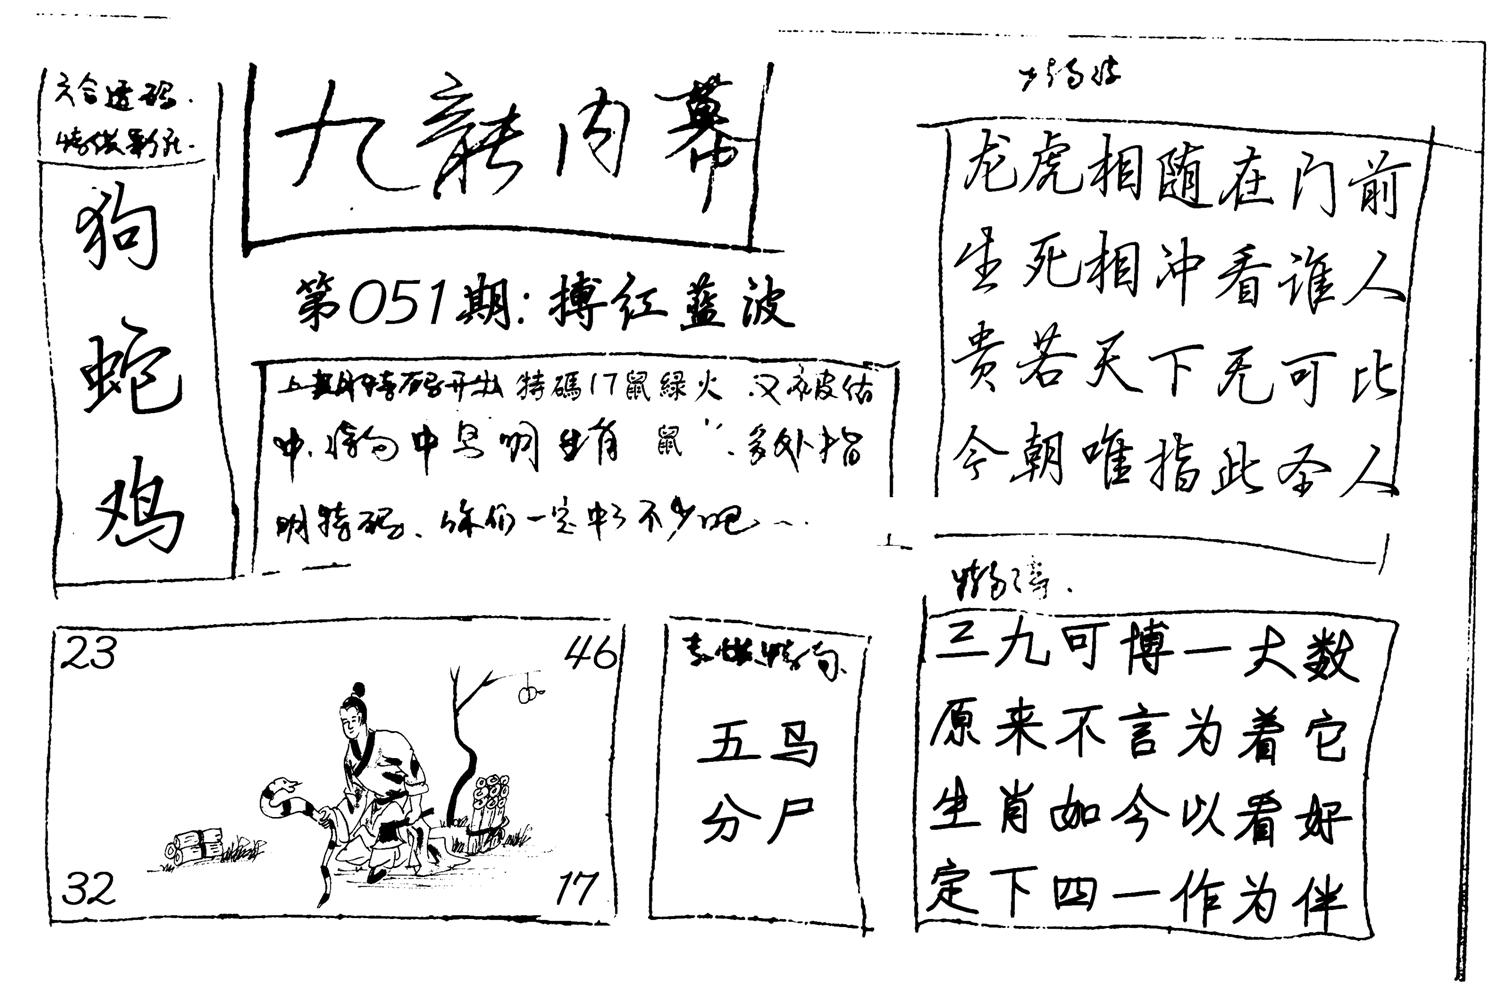 六合透码.
狗
蛇
鸡
九龍内幕
第051期:搏红蓝波
上期特码开出 特碼17鼠緑火 又被估
中.特 中 明生肖 鼠 多处指
明特码、你们一定中了不少吧
龙虎相随在门前
生死相冲看谁人
贵若天下无可比
今朝唯指此圣人
23
46
32
17
五马
分尸
三九可博一大数
原来不言为着它
生肖如今以看好
定下四一作为伴